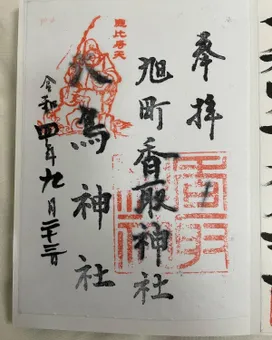 奉拝
旭町香取神社
恵比寿天
大鳥神社
令和四年九月二十三